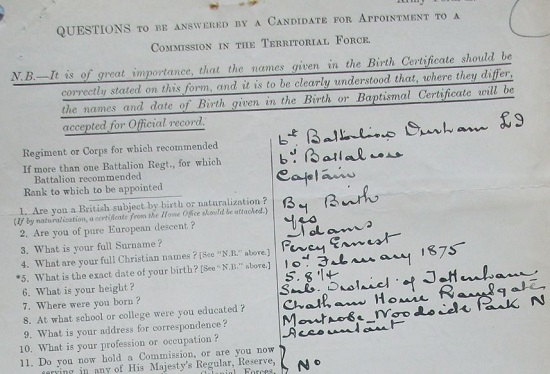 QUESTIONS TO BE ANSWERED BY A CANDIDATE FOR APPOINTMENT TO A
COMMISSION IN THE TERRITORIAL FORCE.
N.B.—It is of great importance, that the names given in the Birth Certificate should be
correctly stated on this form, and it is to be clearly understood that, where they differ,
the names and date of Birth given in the Birth or Baptismal Certificate will be
accepted for Official record.
Regiment or Corps for which recommended 6th Battalion Durham L I
If more than one Battalion Regt., for which
Battalion recommended 6th Battalion
Rank to which to be appointed Captain
1. Are you a British subject by birth or naturalization? By Birth
(If by naturalization, a certificate from the Home Office should be attached.)
2. Are you of pure European descent? Yes
3. What is your full Surname? Adams
4. What are your full Christian names? [See "N.B." above.] Percy Ernest
*5. What is the exact date of your birth? [See "N.B." above.] 10th February 1875
6. What is your height? 5. 8 1/4
7. Where were you born? Sub. District of Tottenham
8. At what school or college were you educated? Chatham House Ramsgate
9. What is your address for correspondence? Montrose Woodside Park N
10. What is your profession or occupation? Accountant
11. Do you now hold a Commission, or are you now
serving in any of His Majesty's Regular, Reserve, No
Colonial Forces,